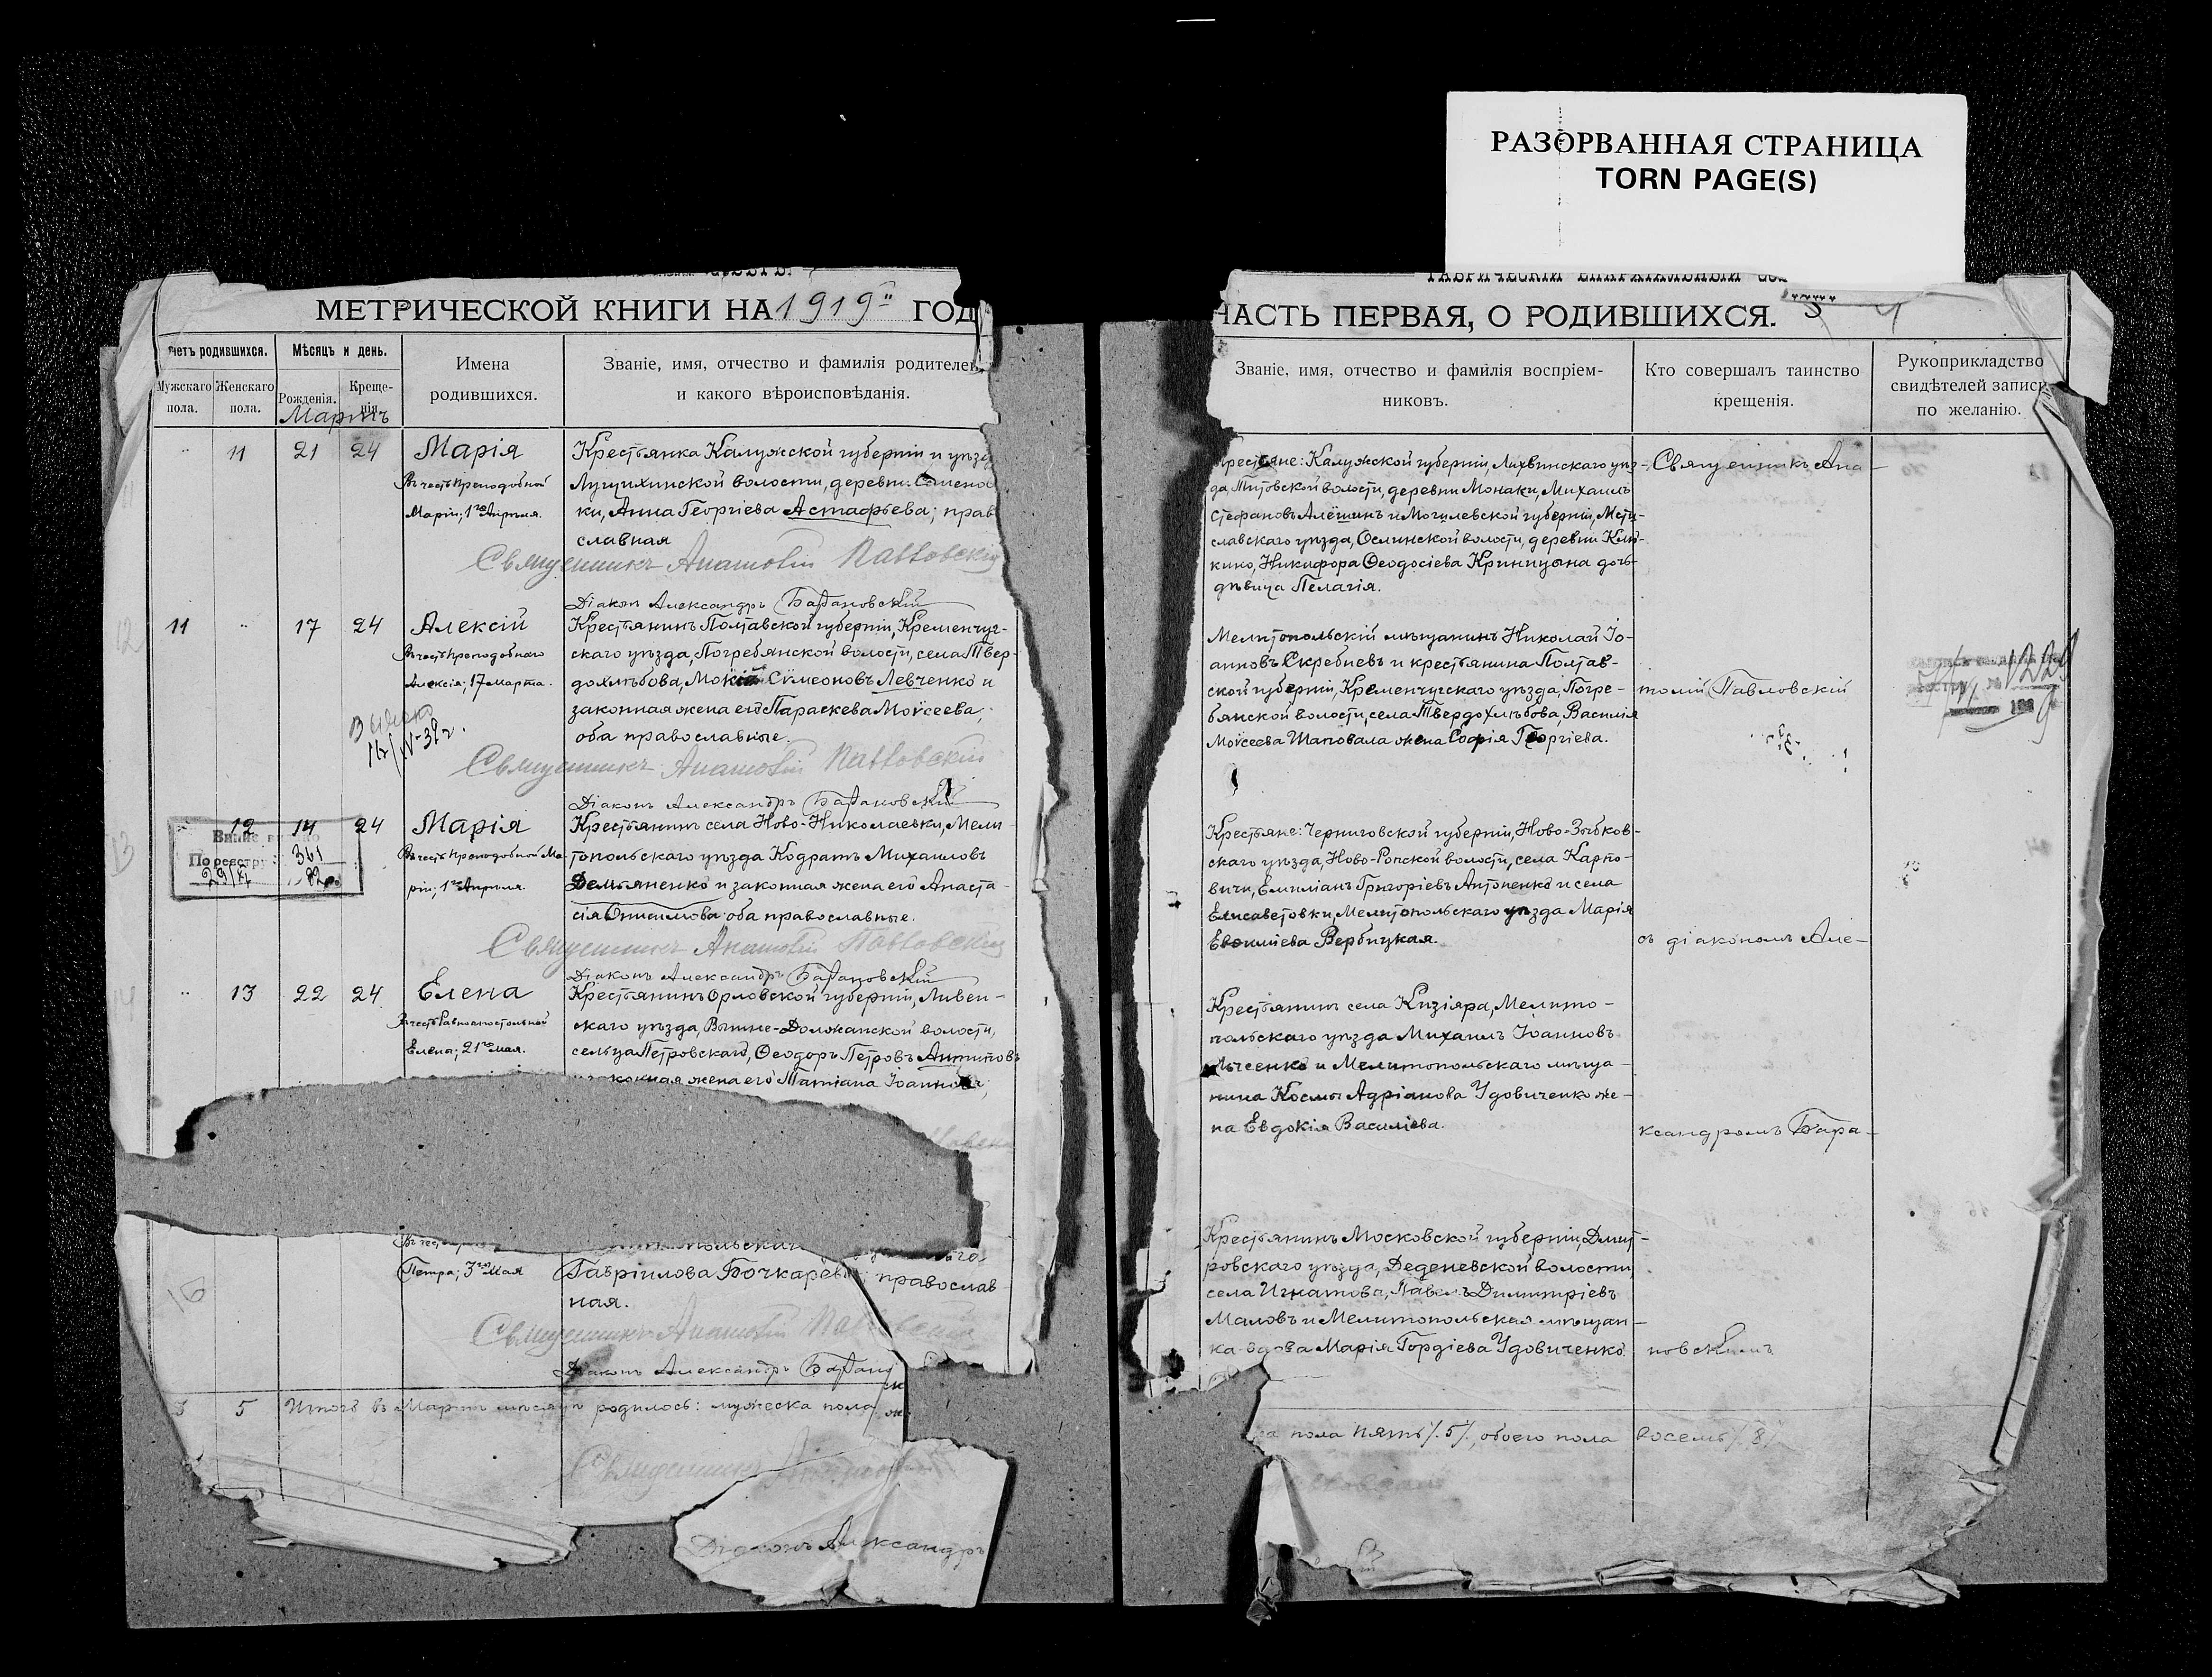 РАЗОРВАННАЯ СТРАНИЦА
TORN PAGE(S)
МЕТРИЧЕСКОЙ КНИГИ НА 1919 ГОД
четъ родившихся.
Мѣсяцъ и день.
Мужскаго пола.
Женскаго пола.
Рожденія.
Креще-
нія.
Мартъ
Имена
родившихся.
Званіе, имя, отчество и фамилія родителей
и какого вѣроисповѣданія.
11 21 24 Марія
Въ честь преподобной
Маріи; 1го Апрѣля.
Крестьянка Калужской губерніи и уѣзд
волости, деревни
ки, Анна Георгіева Астафьева; прав
славная
Священникъ Анатолій Павловскій
Діаконъ Александръ Барановскій
11 17 24 Алексій
Въ честь преподобнаго
Алексія; 17 марта.
Крестьянинъ Полтавской губерніи, Кременчуг-
скаго уѣзда, Погребянской волости, села Твер-
дохлѣбова, Сѵмеоновъ Левченко и
законная жена его Параскева Моѵсеева,
оба православные.
Священникъ Анатолій Павловскій
Діаконъ Александръ Барановскій
12 14 24 Марія
Въ честь преподобной Ма-
ріи; 1го Апрѣля.
По реестру: 361
Крестьянинъ села Ново-Николаевки, Мели-
топольскаго уѣзда Кодратъ Михаиловъ
Демьяненко и законная жена его Анаста-
сія Онисимова оба православные.
Священникъ Анатолій Павловскій
Діаконъ Александръ Барановскій
13 22 24 Елена
Въ честь Равноапостольной
Елена; 21го мая.
Крестьянинъ Орловской губерніи, Ливен-
скаго уѣзда, Вышне-Должанской волости,
сельца Петровскаго, Ѳеодоръ Петровъ Антиповъ
жена его Татіана Іоаннова,
Петра; 3го Мая
Гавріилова Бочкарева; православ
ная.
Священникъ Анатолій
Діаконъ Александръ Баран
5 Итого въ Мартѣ мѣсяцѣ родилось: мужеска пола
Священникъ
Діаконъ Александръ
ЧАСТЬ ПЕРВАЯ, О РОДИВШИХСЯ.
Званіе, имя, отчество и фамилія воспріем-
никовъ.
Кто совершалъ таинство
крещенія.
Рукоприкладство
свидѣтелей записи
по желанію.
Крестьяне: Калужской губерніи, Лихвинскаго уѣз-
да, Титовской волости, деревни Монаки, Михаилъ
Стефановъ Алёшинъ и Могилевской губерніи, Мсти-
славскаго уѣзда, Ослинской волости, деревни
кино, Никифора Ѳеодосіева Криницына дочь
дѣвица Пелагія.
Священникъ Ана-
Мелитопольскій мѣщанинъ Николай Іо-
анновъ Скребневъ и крестьянина Полтав-
ской губерніи, Кременчугскаго уѣзда, Погре-
бянской волости, села Твердохлѣбова, Василія
Моѵсеева Шаповала жена Софія Георгіева.
толій Павловскій
Крестьяне: Черниговской губерніи, Ново-Зыбков-
скаго уѣзда, Ново-Ропской волости, села Карпо-
вичи, Емиліанъ Григоріевъ Антоненко и села
Елисаветовки, Мелитопольскаго уѣзда Марія
Вербицкая.
съ діакономъ Але-
Крестьянинъ села Кизіяра, Мелито-
польскаго уѣзда Михаилъ Іоанновъ
Лысенко и Мелитопольскаго мѣща-
нина Космы Адріанова Удовиченко же-
на Евдокія Василіева.
ксандромъ Бара-
Крестьянинъ Московской губерніи, Дмит-
ровскаго уѣзда, Деденевской волости,
села Игнатова, Павелъ Димитріевъ
Маловъ и Мелитопольская мѣщан-
ка вдова Марія Гордіева Удовиченко.
новскимъ
пола пять /.5/., обоего пола восемь /.8/.